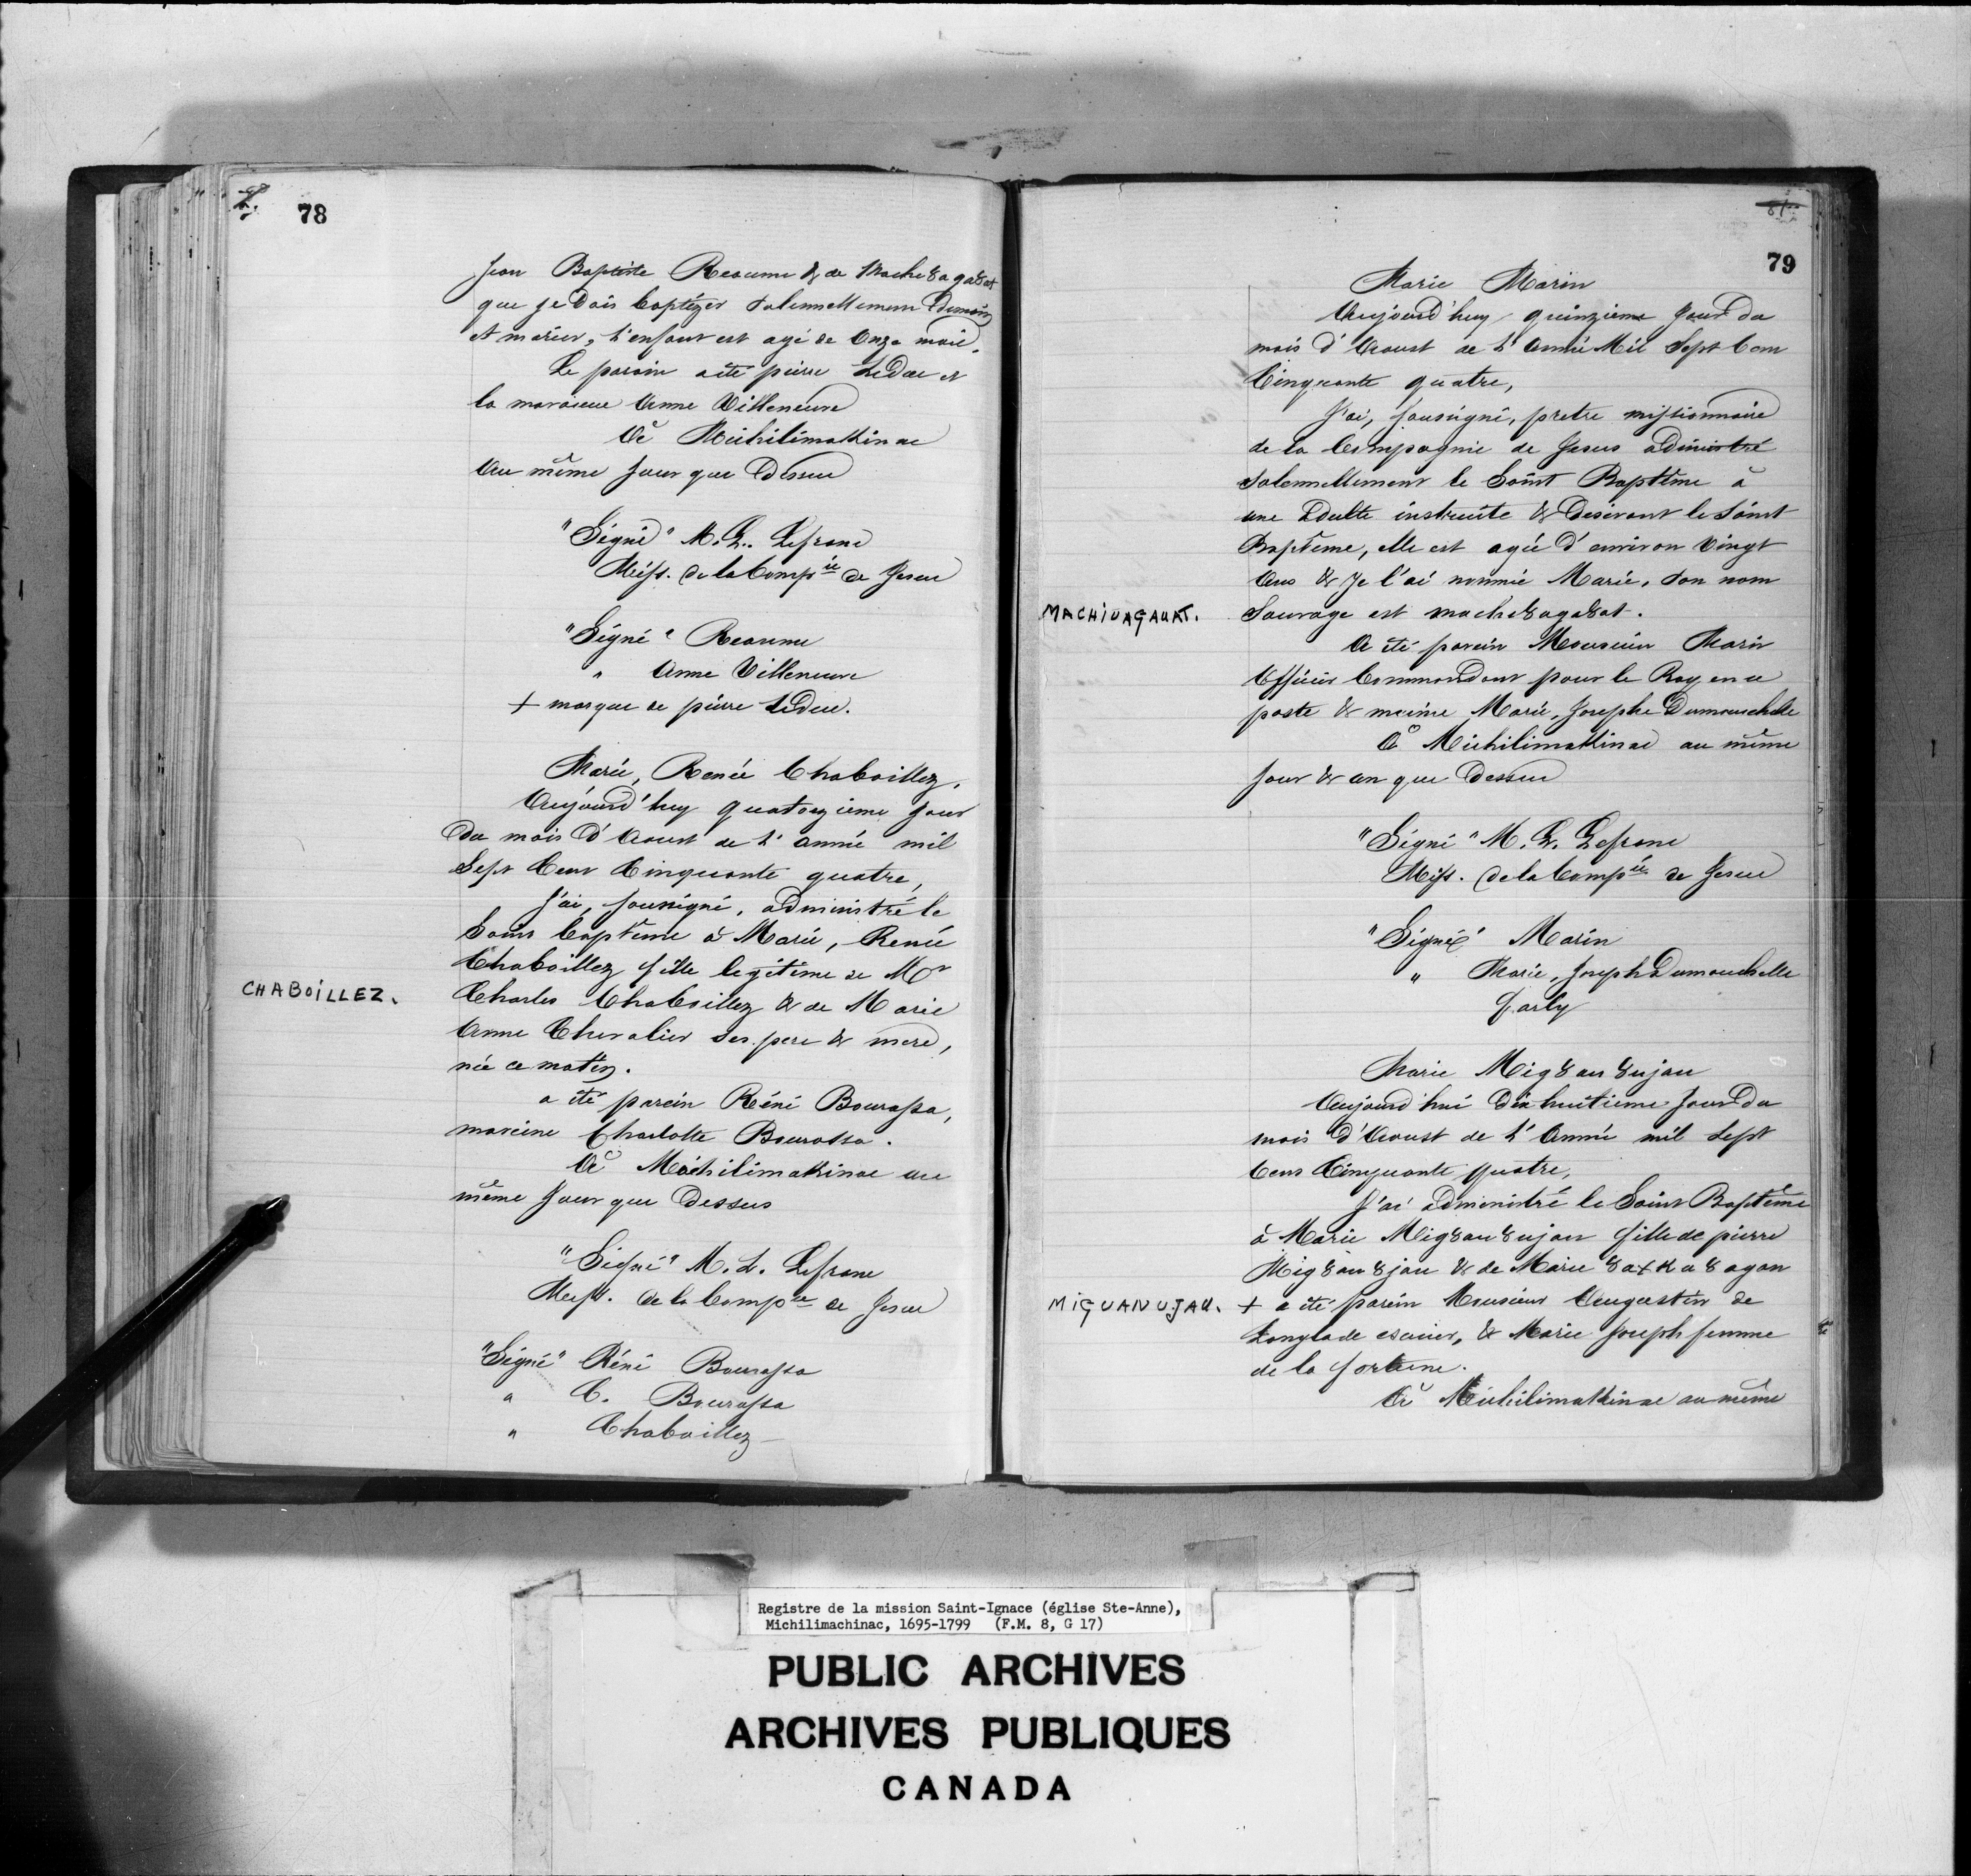 78
Jean Baptiste Reaume & de Mache8aga8at
que je dois baptizer solennellement demain
et marier, l'enfant est agé de onze mois.
Le parain a été pierre Leduc et
la maraine Anne Villeneuve
A Michilimakinac
Au même jour que dessus
"Signé" M. L. Lefranc
Miss. de la Compie de Jesus
"Signé" Reaume
" Anne Villeneuve
+ marque de pierre Leduc.
Marie, Renée Chaboillez.
Aujourd'huy quatorzieme jour
du mois d'Aoust de l'année mil
Sept Cent Cinquante quatre,
J'ai, soussigné, administré le
Saint baptême à Marie, Renée
Chaboillez fille legitime de Mr
CHABOILLEZ.
Charles Chaboillez & de Marie
Anne Chevalier ses pere & mere,
née ce matin.
a été parein Réné Bourassa,
mareine Charlotte Bourassa.
A Michilimakinac au
même jour que dessus
"Signé" M. L. Lefranc
Miss. de la Compie de Jesus
"Signé" Réné Bourassa
" C. Bourassa
" Chaboillez
79
Marie Marin
Aujourd'huy quinzieme jour du
mois d'Aoust de l'Année Mil Sept Cent
Cinquante quatre,
J'ai, soussigné, pretre missionnaire
de la Compagnie de Jesus administré
solennellement le Saint Baptême à
une adulte instruite & desirant le Saint
Baptême, elle est agée d'environ vingt
ans & je l'ai nommée Marie, son nom
MACHIUAGAUAT.
Sauvage est mache8aga8at.
A été parein Monsieur Marin
Officier Commandant pour le Roy en ce
poste & meine Marie, Josephe Dumouchelle
A Michilimakinac au même
jour & an que dessus
"Signé" M. L. Lefranc
Miss. de la Compie de Jesus
"Signé" Marin
" Marie, Joseph Dumouchelle
farly
Marie Mig8an8ujan
Aujourd'hui dix huitieme jour du
mois d'Aoust de l'Année mil sept
Cens Cinquante quatre,
J'ai administré le Saint Baptême
à Marie Mig8an8ujan fille de pierre
Mig8an8jan & de Marie
MIGUANUJAU.
+ a été parein Monsieur Augustin de
Langlade escuier, & Marie Joseph femme
de la fortune.
A Michilimakinac au même
Registre de la mission Saint-Ignace (église Ste-Anne),
Michilimachinac, 1695-1799 (F.M. 8, G 17)
PUBLIC ARCHIVES
ARCHIVES PUBLIQUES
CANADA